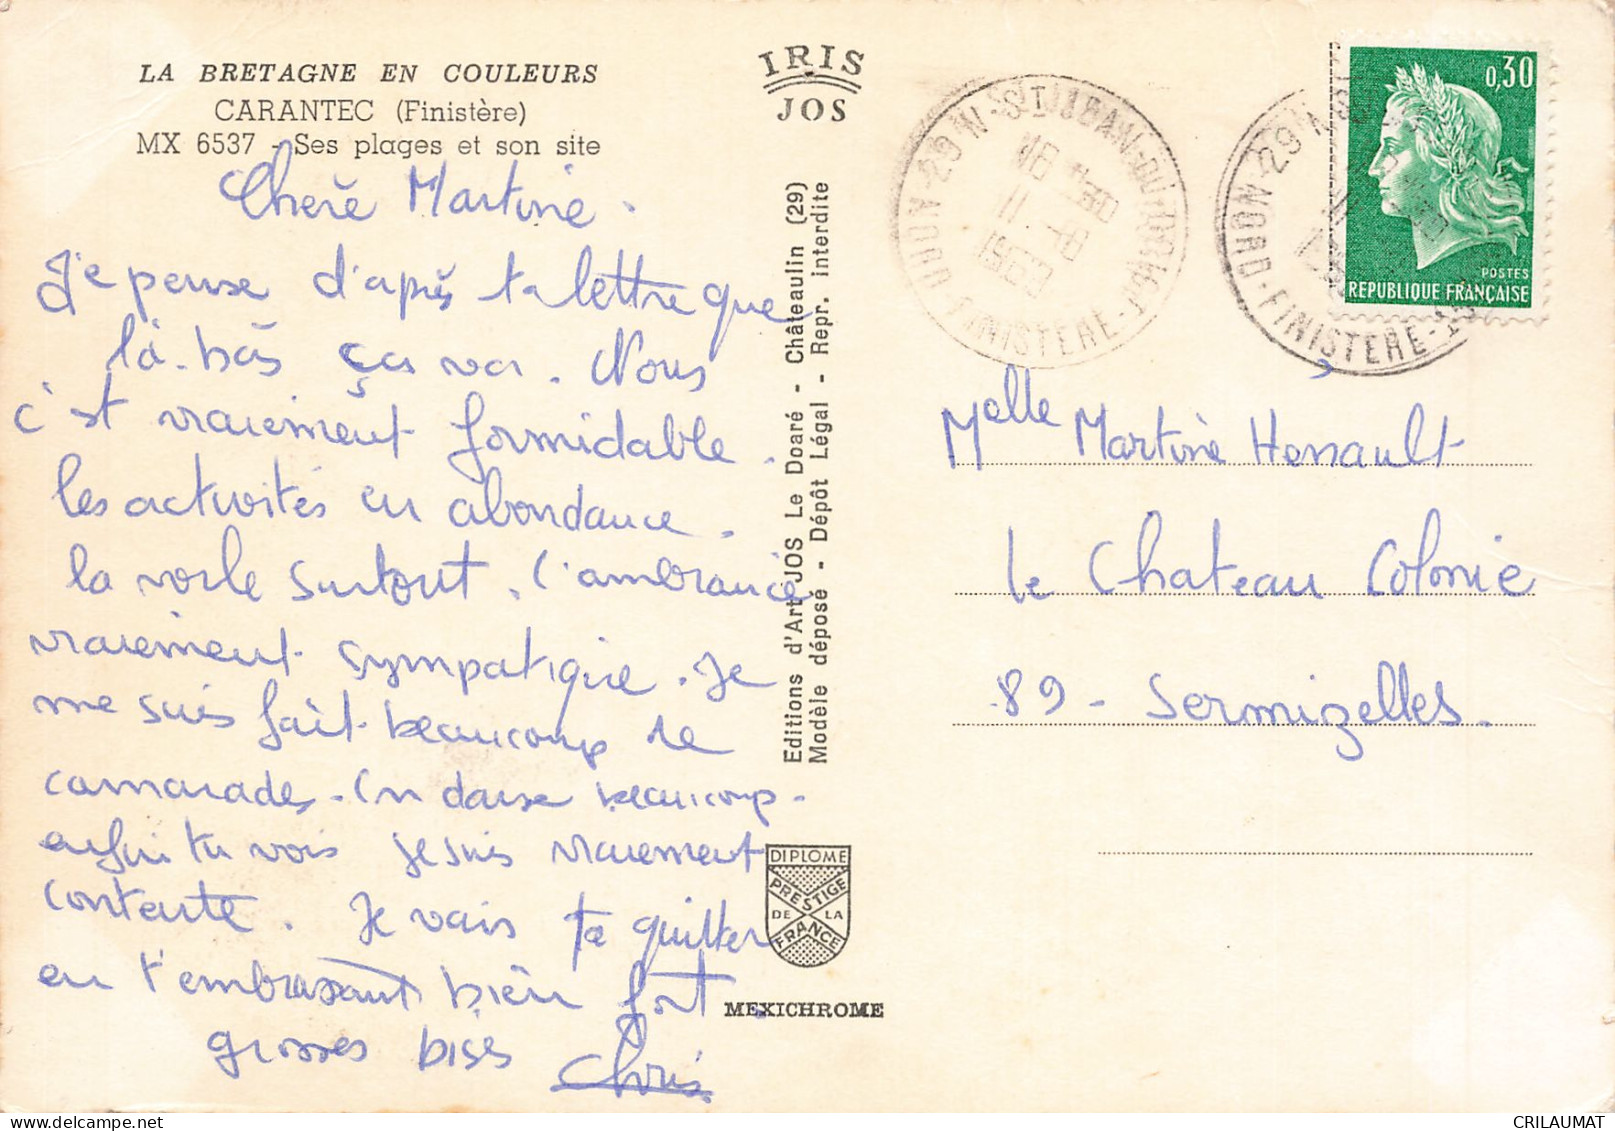 LA BRETAGNE EN COULEURS
CARANTEC (Finistère)
MX 6537 - Ses plages et son site
Chère Martine.
Je pense d'après ta lettre que
là-bas ça va. Nous
c'est vraiement formidable.
les activités en abondance.
la voile surtout. l'ambiance
vraiement sympatique. Je
me suis fait beaucoup de
camarades. On danse beaucoup.
enfin tu vois je suis vraiement
contente. Je vais te quitter
en t'embrassant bien fort
grosses bises Chris
IRIS
JOS
Editions d'Art JOS Le Doaré - Châteaulin (29)
Modèle déposé - Dépôt Légal - Repr. interdite
DIPLOME
PRESTIGE
DE LA
FRANCE
MEXICHROME
29N-ST JEAN-DU-DOIGT
NORD-FINISTERE
0,30
POSTES
REPUBLIQUE FRANÇAISE
29N
NORD-FINISTERE
Melle Martine Henault
le Chateau Colonie
89 - Sermizelles.
CRILAUMAT